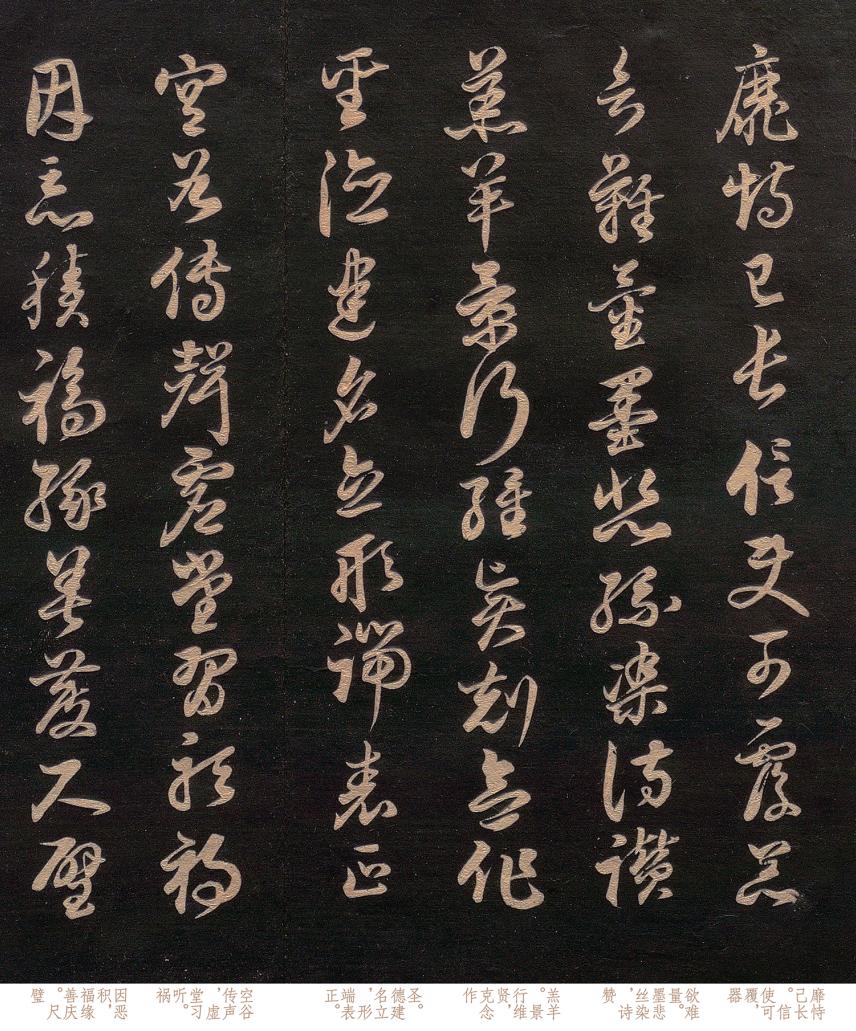 靡恃己长信使可覆器
欲难量墨悲丝染诗讃
羔羊景行维贤克念作
圣德建名立形端表正
空谷传声虚堂习听祸
因恶积福缘善庆尺璧
靡恃己长。信使可覆,器
欲难量。墨悲丝染,诗赞
羔羊。景行维贤,克念作
圣。德建名立,形端表正。
空谷传声,虚堂习听。祸
因恶积,福缘善庆。尺璧